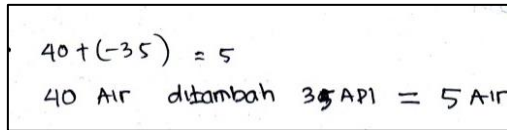 40 + (-35) = 5
40 Air ditambah 35 API = 5 Air